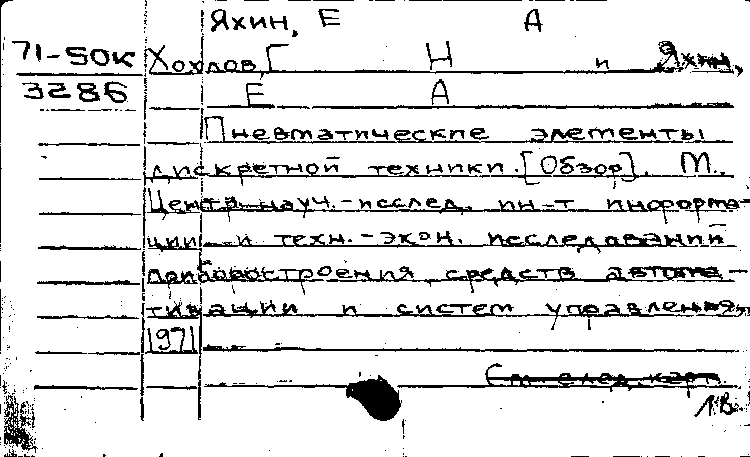 Яхин, Е А
71-50К Хохлов, Г Н и Яхин,
3286 Е А
Пневматические элементы
дискретной техники. [Обзор]. М.,
Центр. науч.-исслед. ин-т информа-
ции и техн.-экон. исследований
приборостроения, средств автома-
тизации и систем управления,
1971
См. след. карт.